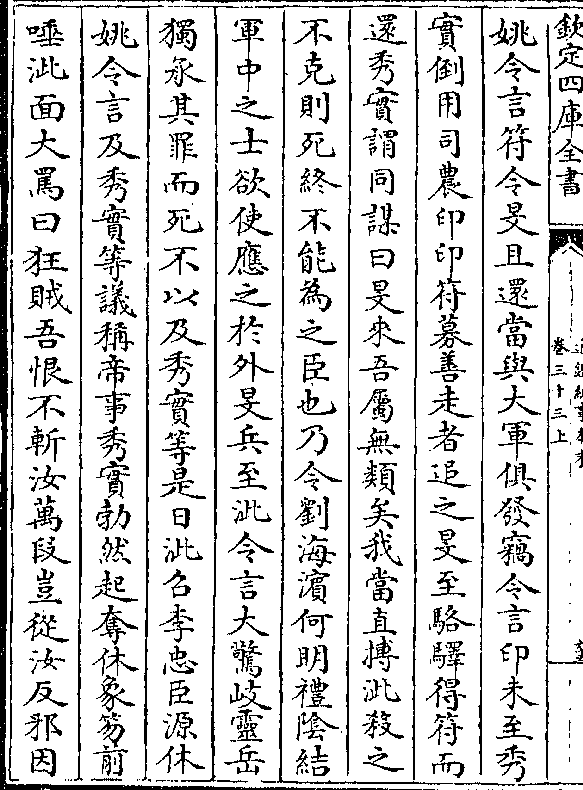 欽定四庫全書
卷三十三上
姚令言符令旻且還當與大軍俱發竊令言印未至秀
實倒用司農印印符募善走者追之旻至駱驛得符而
還秀實謂同謀曰旻來吾屬無類矣我當直搏泚殺之
不克則死終不能為之臣也乃令劉海濵何明禮陰結
軍中之士欲使應之於外旻兵至泚令言大驚岐靈岳
獨承其罪而死不以及秀實等是日泚召李忠臣源休
姚令言及秀實等議稱帝事秀實勃然起奪休象笏前
唾泚面大罵曰狂賊吾恨不斬汝萬段豈從汝反邪因